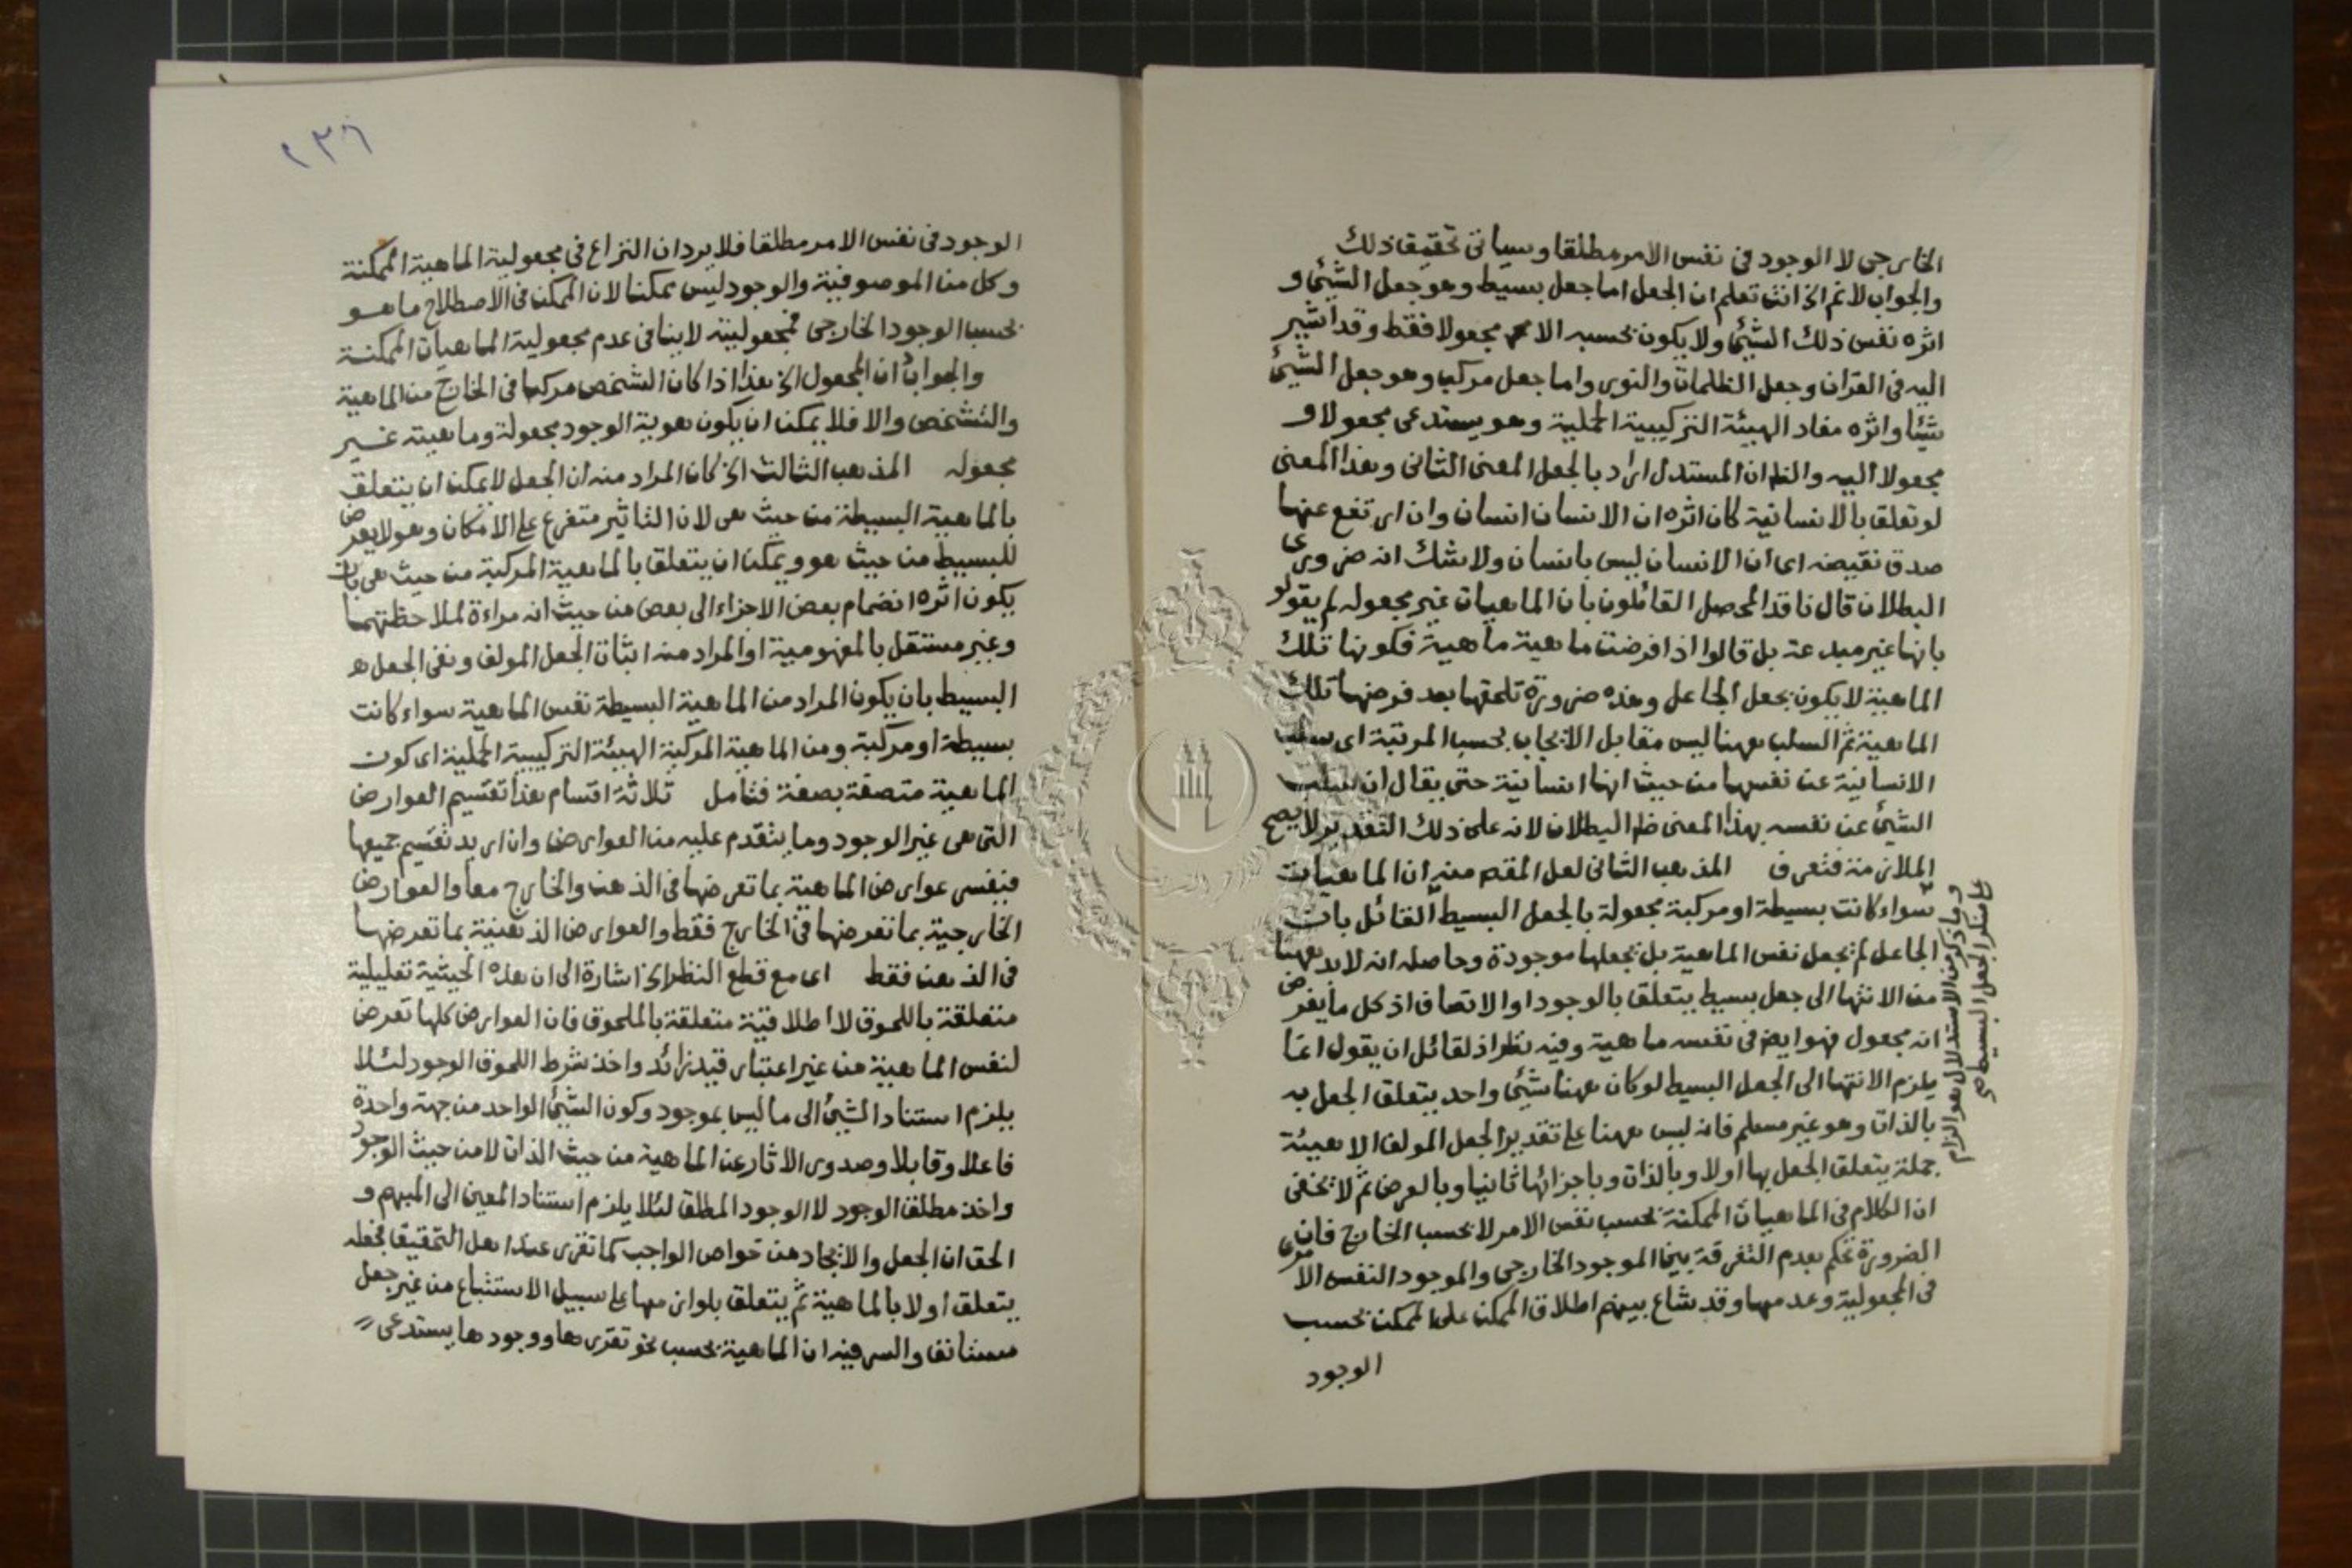 الخارجى لا الوجود فى نفس الامر مطلقا وسياتى تحقيق ذلك
والجواب لا ثم الخ انت تعلم ان الجعل اما جعل بسيط وهو جعل الشئ و
اثره نفس ذلك الشئ ولا يكون بحسبه الا مجعولا فقط وقد اشير
اليه فى القران وجعل الظلمات والنور واما جعل مركب وهو جعل الشئ
شيئا واثره مفاد الهيئة التركيبية الحملية وهو يستدعى مجعولا و
مجعولا اليه والظ ان المستدل اراد بالجعل المعنى الثانى وهذا المعنى
لو تعلق بالانسانية كان اثره ان الانسان انسان وان ارتفع عنها
صدق نقيضه اى ان الانسان ليس بانسان ولا شك انه ضرورى
البطلان قال ناقد المحصل القائلون بان الماهيات غير مجعوله لم يقولو
بانها غير مبدعة بل قالوا اذا فرضت ماهية ماهية فكونها تلك
الماهية لا يكون بجعل الجاعل وهذه ضرورة تلحقها بعد فرضها تلك
الماهية ثم السلب ههنا ليس مقابل الايجاب بحسب المرتبة اى سلب
الانسانية عن نفسها من حيث انها انسانية حتى يقال ان سلب
الشئ عن نفسه بهذا المعنى ظ البطلان لانه على ذلك التقدير لا يصح
الملازمة فتعرف المذهب الثانى لعل المقص منه ان الماهيات
سواء كانت بسيطة او مركبة مجعولة بالجعل البسيط القائل بان
الجاعل لم يجعل نفس الماهية بل يجعلها موجودة وحاصله انه لا بد ههنا
من الانتها الى جعل بسيط يتعلق بالوجود او الاتصاف اذ كل ما يفرض
انه مجعول فهو ايض فى نفسه ماهية وفيه نظر اذ لقائل ان يقول انما
يلزم الانتها الى الجعل البسيط لو كان ههنا شيئى واحد يتعلق الجعل به
بالذات وهو غير مسلم فانه ليس ههنا على تقدير الجعل المولف الا هيئة
جملة يتعلق الجعل بها اولا وبالذات وباجزائها ثانيا وبالعرض ثم لا يخفى
ان الكلام فى الماهيات الممكنة بحسب نفس الامر لا بحسب الخارج فان
الضرورة تحكم بعدم التفرقة بين الموجود الخارجى والموجود النفس الامرى
فى المجعولية وعدمها وقد شاع بينهم اطلاق الممكن على الممكن بحسب
الوجود
وما ذكر من الاستدلال هو الزام
على منكر الجعل البسيط
٢٣٦
الوجود فى نفس الامر مطلقا فلا يرد ان النزاع فى مجعولية الماهية الممكنة
وكل من الموصوفية والوجود ليس ممكنا لان الممكن فى الاصطلاح ما هو
بحسب الوجود الخارجى فمجعوليته لا ينافى عدم مجعولية الماهيات الممكنة
والجواب ان المجعول الخ هذا اذا كان الشخص مركبا فى الخارج من الماهية
والتشخص والا فلا يمكن ان يكون هوية الوجود مجعولة وماهيته غير
مجعوله المذهب الثالث الخ كان المراد منه ان الجعل لا يمكن ان يتعلق
بالماهية البسيطة من حيث هى لان التاثير متفرع على الامكان وهو لا يعرض
للبسيط من حيث هو ويمكن ان يتعلق بالماهية المركبة من حيث هى بان
يكون اثره انضمام بعض الاجزاء الى بعض من حيث انه مراءة لملاحظتهما
وغير مستقل بالمفهومية او المراد منه اثبات الجعل المولف ونفى الجعل
البسيط بان يكون المراد من الماهية البسيطة نفس الماهية سواء كانت
بسيطة او مركبة ومن الماهية المركبة الهيئة التركيبية الحملية اى كون
الماهية متصفة بصفة فتامل ثلاثة اقسام هذا تقسيم العوارض
التى هى غير الوجود وما يتقدم عليه من العوارض وان اريد تقسيم جميعها
فيفسر عوارض الماهية بما تعرضها فى الذهن والخارج معا والعوارض
الخارجية بما تعرضها فى الخارج فقط والعوارض الذهنية بما تعرضها
فى الذهن فقط اى مع قطع النظر الخ اشارة الى ان هذه الحيثية تعليلية
متعلقة باللحوق لا اطلاقية متعلقة بالملحوق فان العوارض كلها تعرض
لنفس الماهية من غير اعتبار قيد زائد واخذ شرط اللحوق الوجود لئلا
يلزم استناد الشئ الى ما ليس بموجود وكون الشئ الواحد من جهة واحدة
فاعلا وقابلا وصدور الاثار عن الماهية من حيث الذات لا من حيث الوجود
واخذ مطلق الوجود لا الوجود المطلق لئلا يلزم استناد المعين الى المبهم و
الحق ان الجعل والايجاد من خواص الواجب كما تقرر عند اهل التحقيق فجعله
يتعلق اولا بالماهية ثم يتعلق بلوازمها على سبيل الاستتباع من غير جعل
مستانف والسر فيه ان الماهية بحسب نحو تقررها ووجودها يستدعى